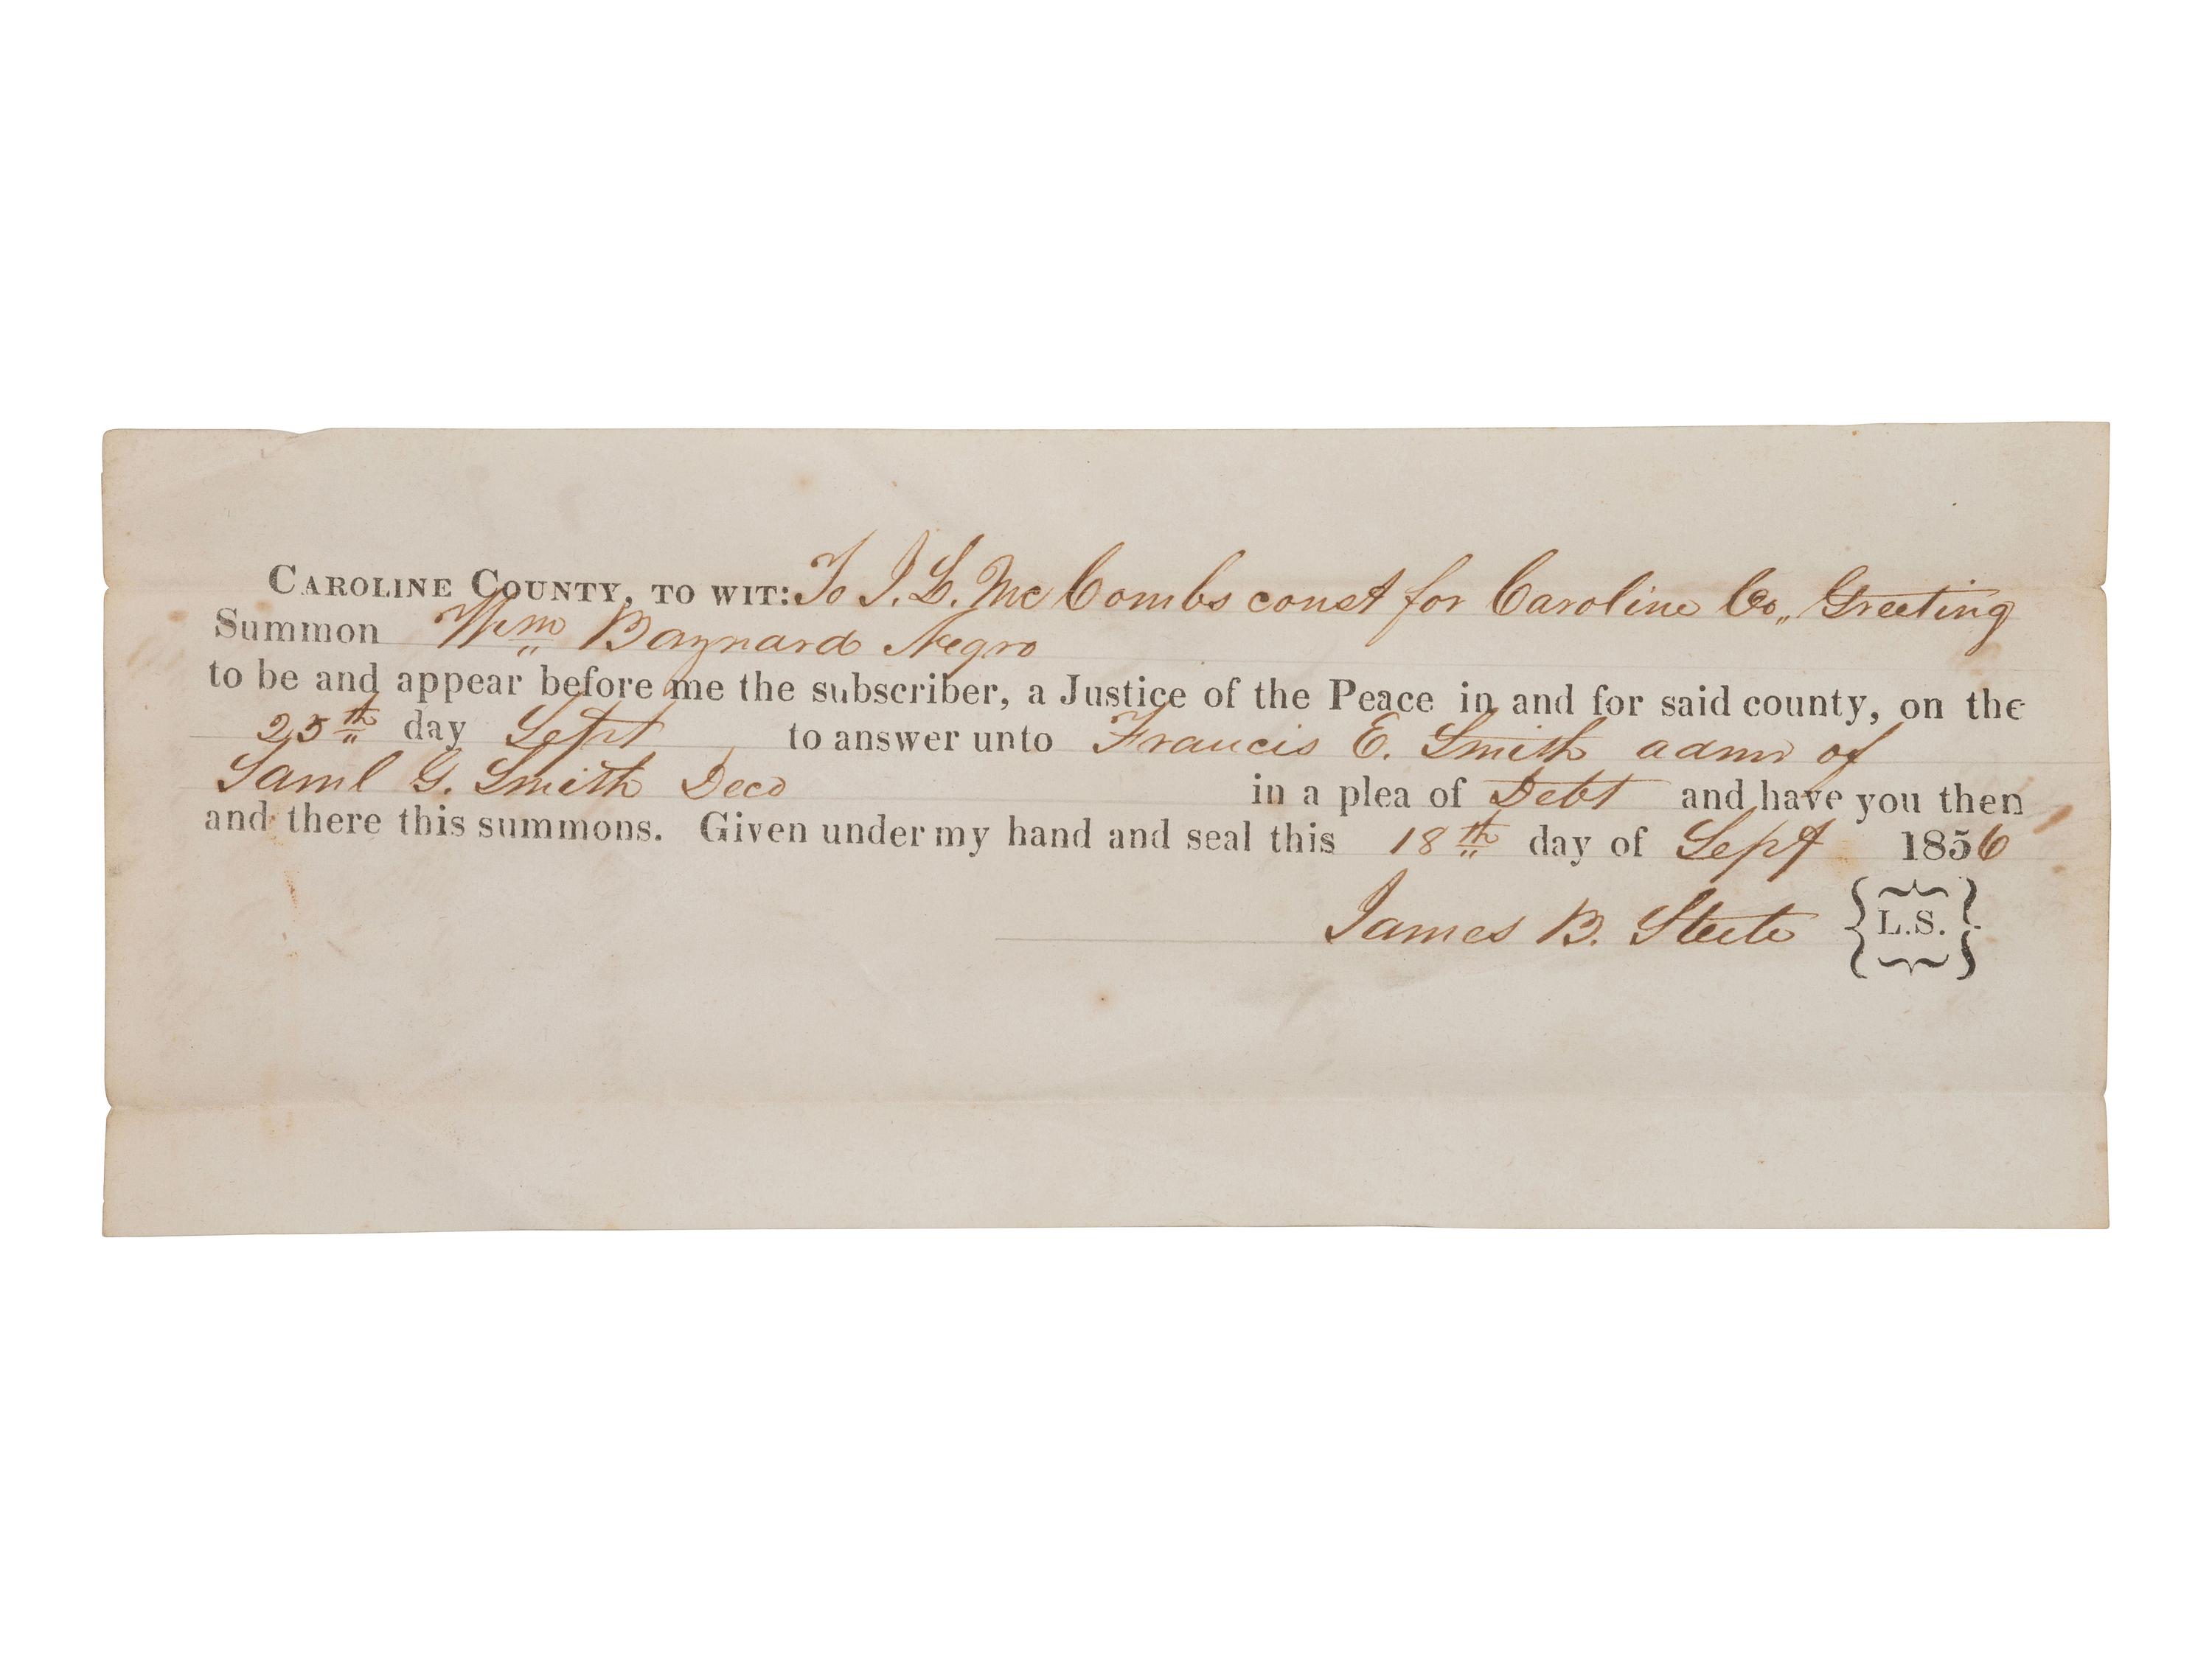 CAROLINE COUNTY, TO WIT: To J. L. McCombs const for Caroline Co,, Greeting
Summon Wm Baynard Negro
to be and appear before me the subscriber, a Justice of the Peace in and for said county, on the
25th day Sept to answer unto Francis E. Smith admr of
Saml G. Smith Decd in a plea of Debt and have you then
and there this summons. Given under my hand and seal this 18th day of Sept 1856
James B. Steele {L.S.}